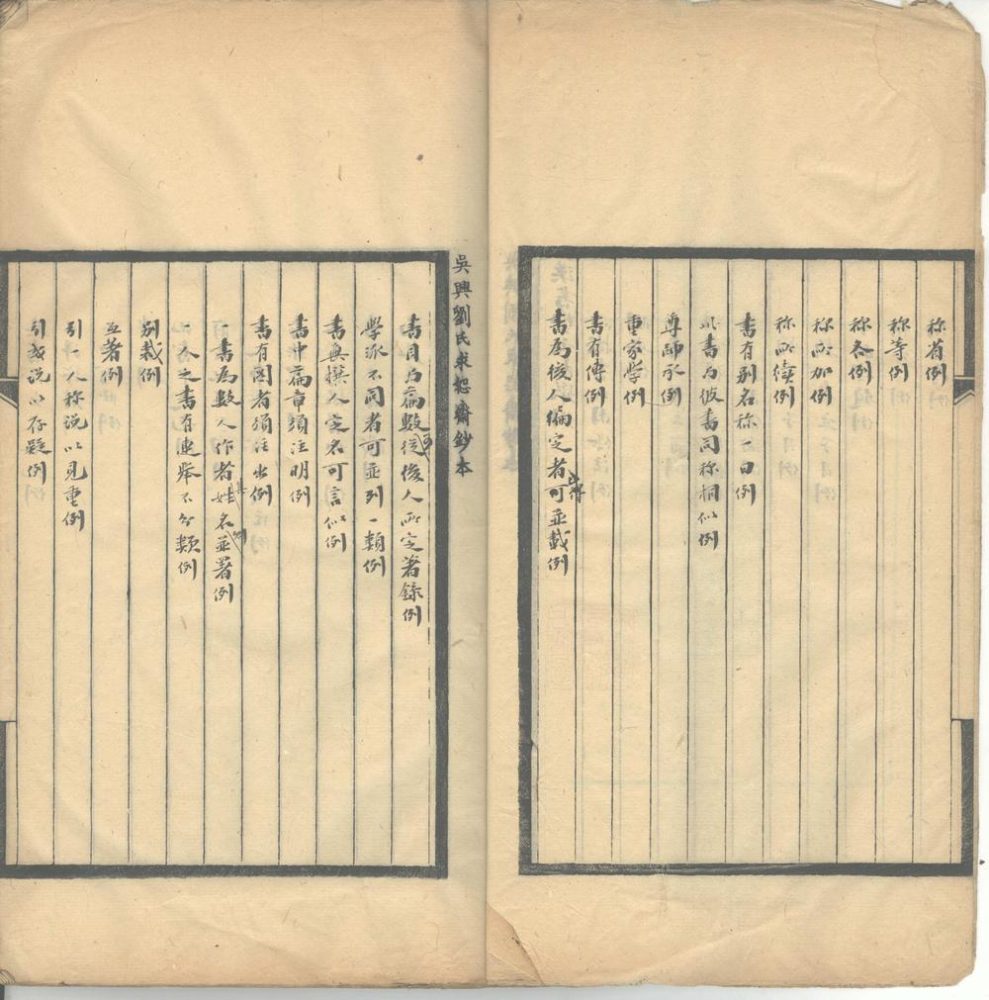 称省例
称等例
称各例
称所加例
称所續例
書有别名称一曰例
此書与彼書同称相似例
尊師承例
重家學例
書有傳例
書為後人編定者可並載例
吳興劉氏求恕齋鈔本
書目与篇數從後人所定著錄例
學派不同者可並列一類例
書無撰人定名可言似例
書中篇章須注明例
書有圖者須注出例
一書為數人作者姓名並署例
一人之書有連舉不分類例
别裁例
互著例
引一人称說以見重例
引或說以存疑例